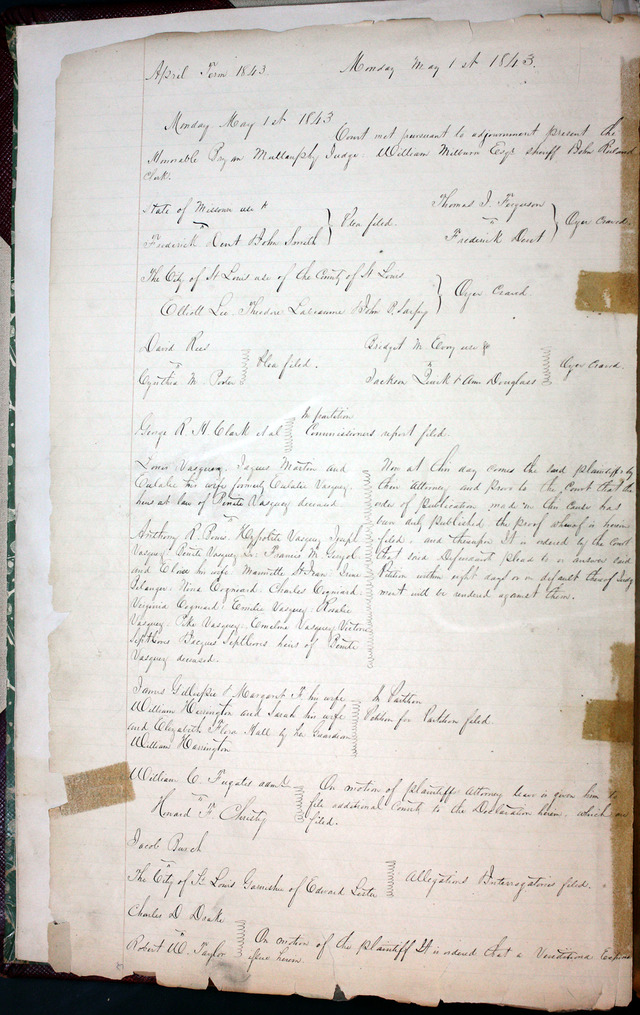 April Term 1843. Monday May 1st 1843.
Monday May 1st 1843
Court met pursuant to adjournment present the
Honorable Bryan Mullanphy Judge. William Milburn Esqr sheriff John Ruland
Clerk.
State of Missouri use &
vs
Frederick Dent John Smith
Plea filed.
Thomas J. Ferguson
vs
Frederick Dent
Oyer Craved.
The City of St Louis use of the County of St Louis
vs
Elliott Lee. Theodore Labeaume John P. Sarpy
Oyer Craved.
David Rees
vs
Cynthia M.
Plea filed.
Bridget M use &
vs
Jackson Quirk & Ann Douglass
Oyer Craved.
George R. H. Clark et al
In partition
Commissioners report filed.
Louis Vasquez. Jaques Martin and
Eulalie his wife formerly Eulalie Vasquez.
heirs at law of Benite Vasquez deceased
vs
Anthony R. Hypolite Vasquez Joseph
Vasquez. Benite Vasquez Francis M.
and Eloise his wife. St Jean
Nina Cogniard. Charles Cogniard.
Virginia Cogniard. Emelie Vasquez. Rosalie
Vasquez. Pike Vasquez. Emeline Vasquez Victoria
heirs of Benite
Vasquez deceased.
Now at this day comes the said plaintiffs by
their Attorney and prove to the Court that the
order of publication made in this cause has
been duly published. the proof whereof is herein
filed. and thereupon It is ordered by the Court
that said Defendants plead to or answer said
Petition within eight days or in default thereof Judg
ment will be rendered against them.
James Gillespie & Margaret F. his wife
William Harrington and Sarah his wife
and Elizabeth Flora Hall by her Guardian
William Harrington
In Partition
Petition for Partition filed
William C. Fugate admr
vs
Howard F. Christy
On motion of plaintiffs Attorney leave is given him to
file additional Counts to the Declaration herein. which are
filed.
Jacob Busch
vs
The City of St Louis Garnishee of Edward Lester
Allegations Interrogatories filed.
Charles D. Drake
vs
Robert W. Taylor
On motion of the plaintiff It is ordered that a Venditiona Exponas
issue herein.